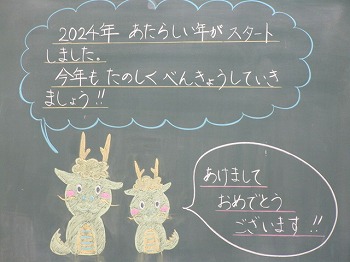 2024年 あたらしい年が スタート
しました.
今年も たのしく べんきょうしていき
ましょう!!
あけまして
おめでとう
ございます!!